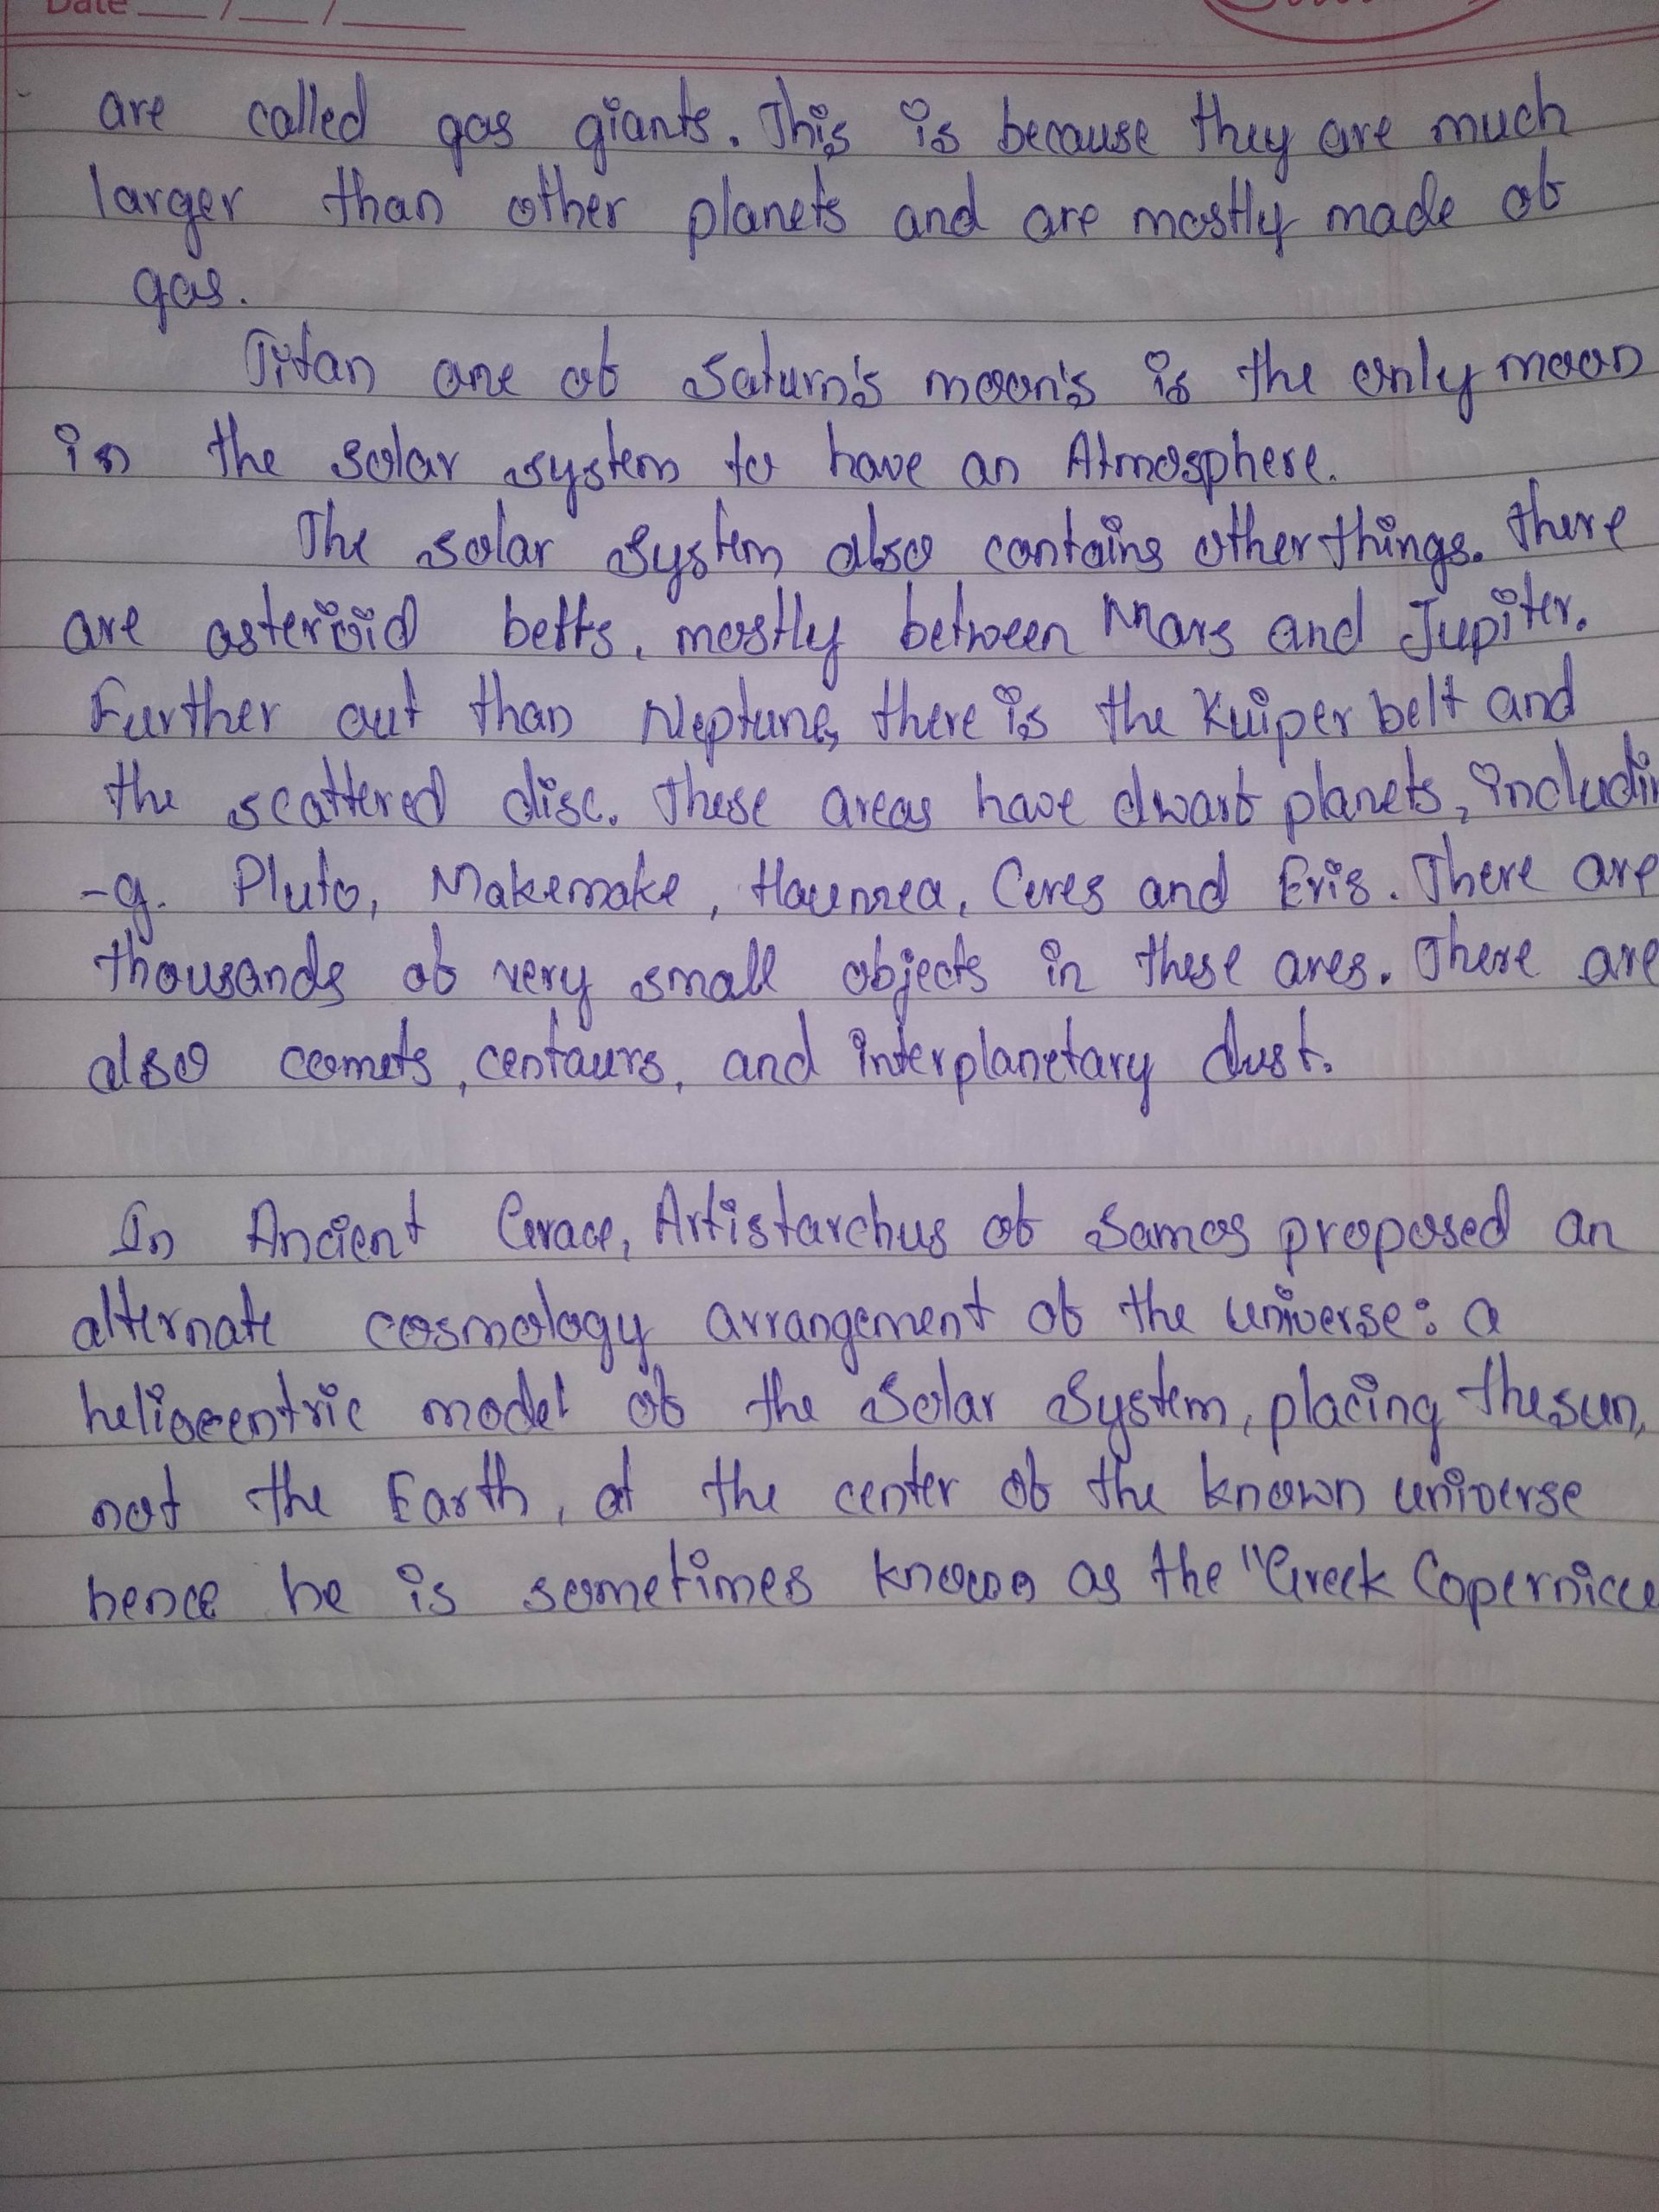 Date __/__/__
are called gas giants. This is because they are much
larger than other planets and are mostly made of
gas.
Titan one of Saturn's moon's is the only moon
in the solar system to have an Atmosphere.
The solar system also contains other things. There
are asterioid belts, mostly between Mars and Jupiter.
Further out than Neptune, there is the Kuiper belt and
the scattered disc. These areas have dwarf planets, includin
-g. Pluto, Makemake, Haumea, Ceres and Eris. There are
thousands of very small objects in these ares. There are
also comets, centaurs, and interplanetary dust.
In Ancient Grace, Artistarchus of Samos proposed an
alternate cosmology arrangement of the universe: a
heliocentric model of the Solar System, placing the sun,
not the Earth, at the center of the known universe
hence he is sometimes known as the "Greek Copernicu